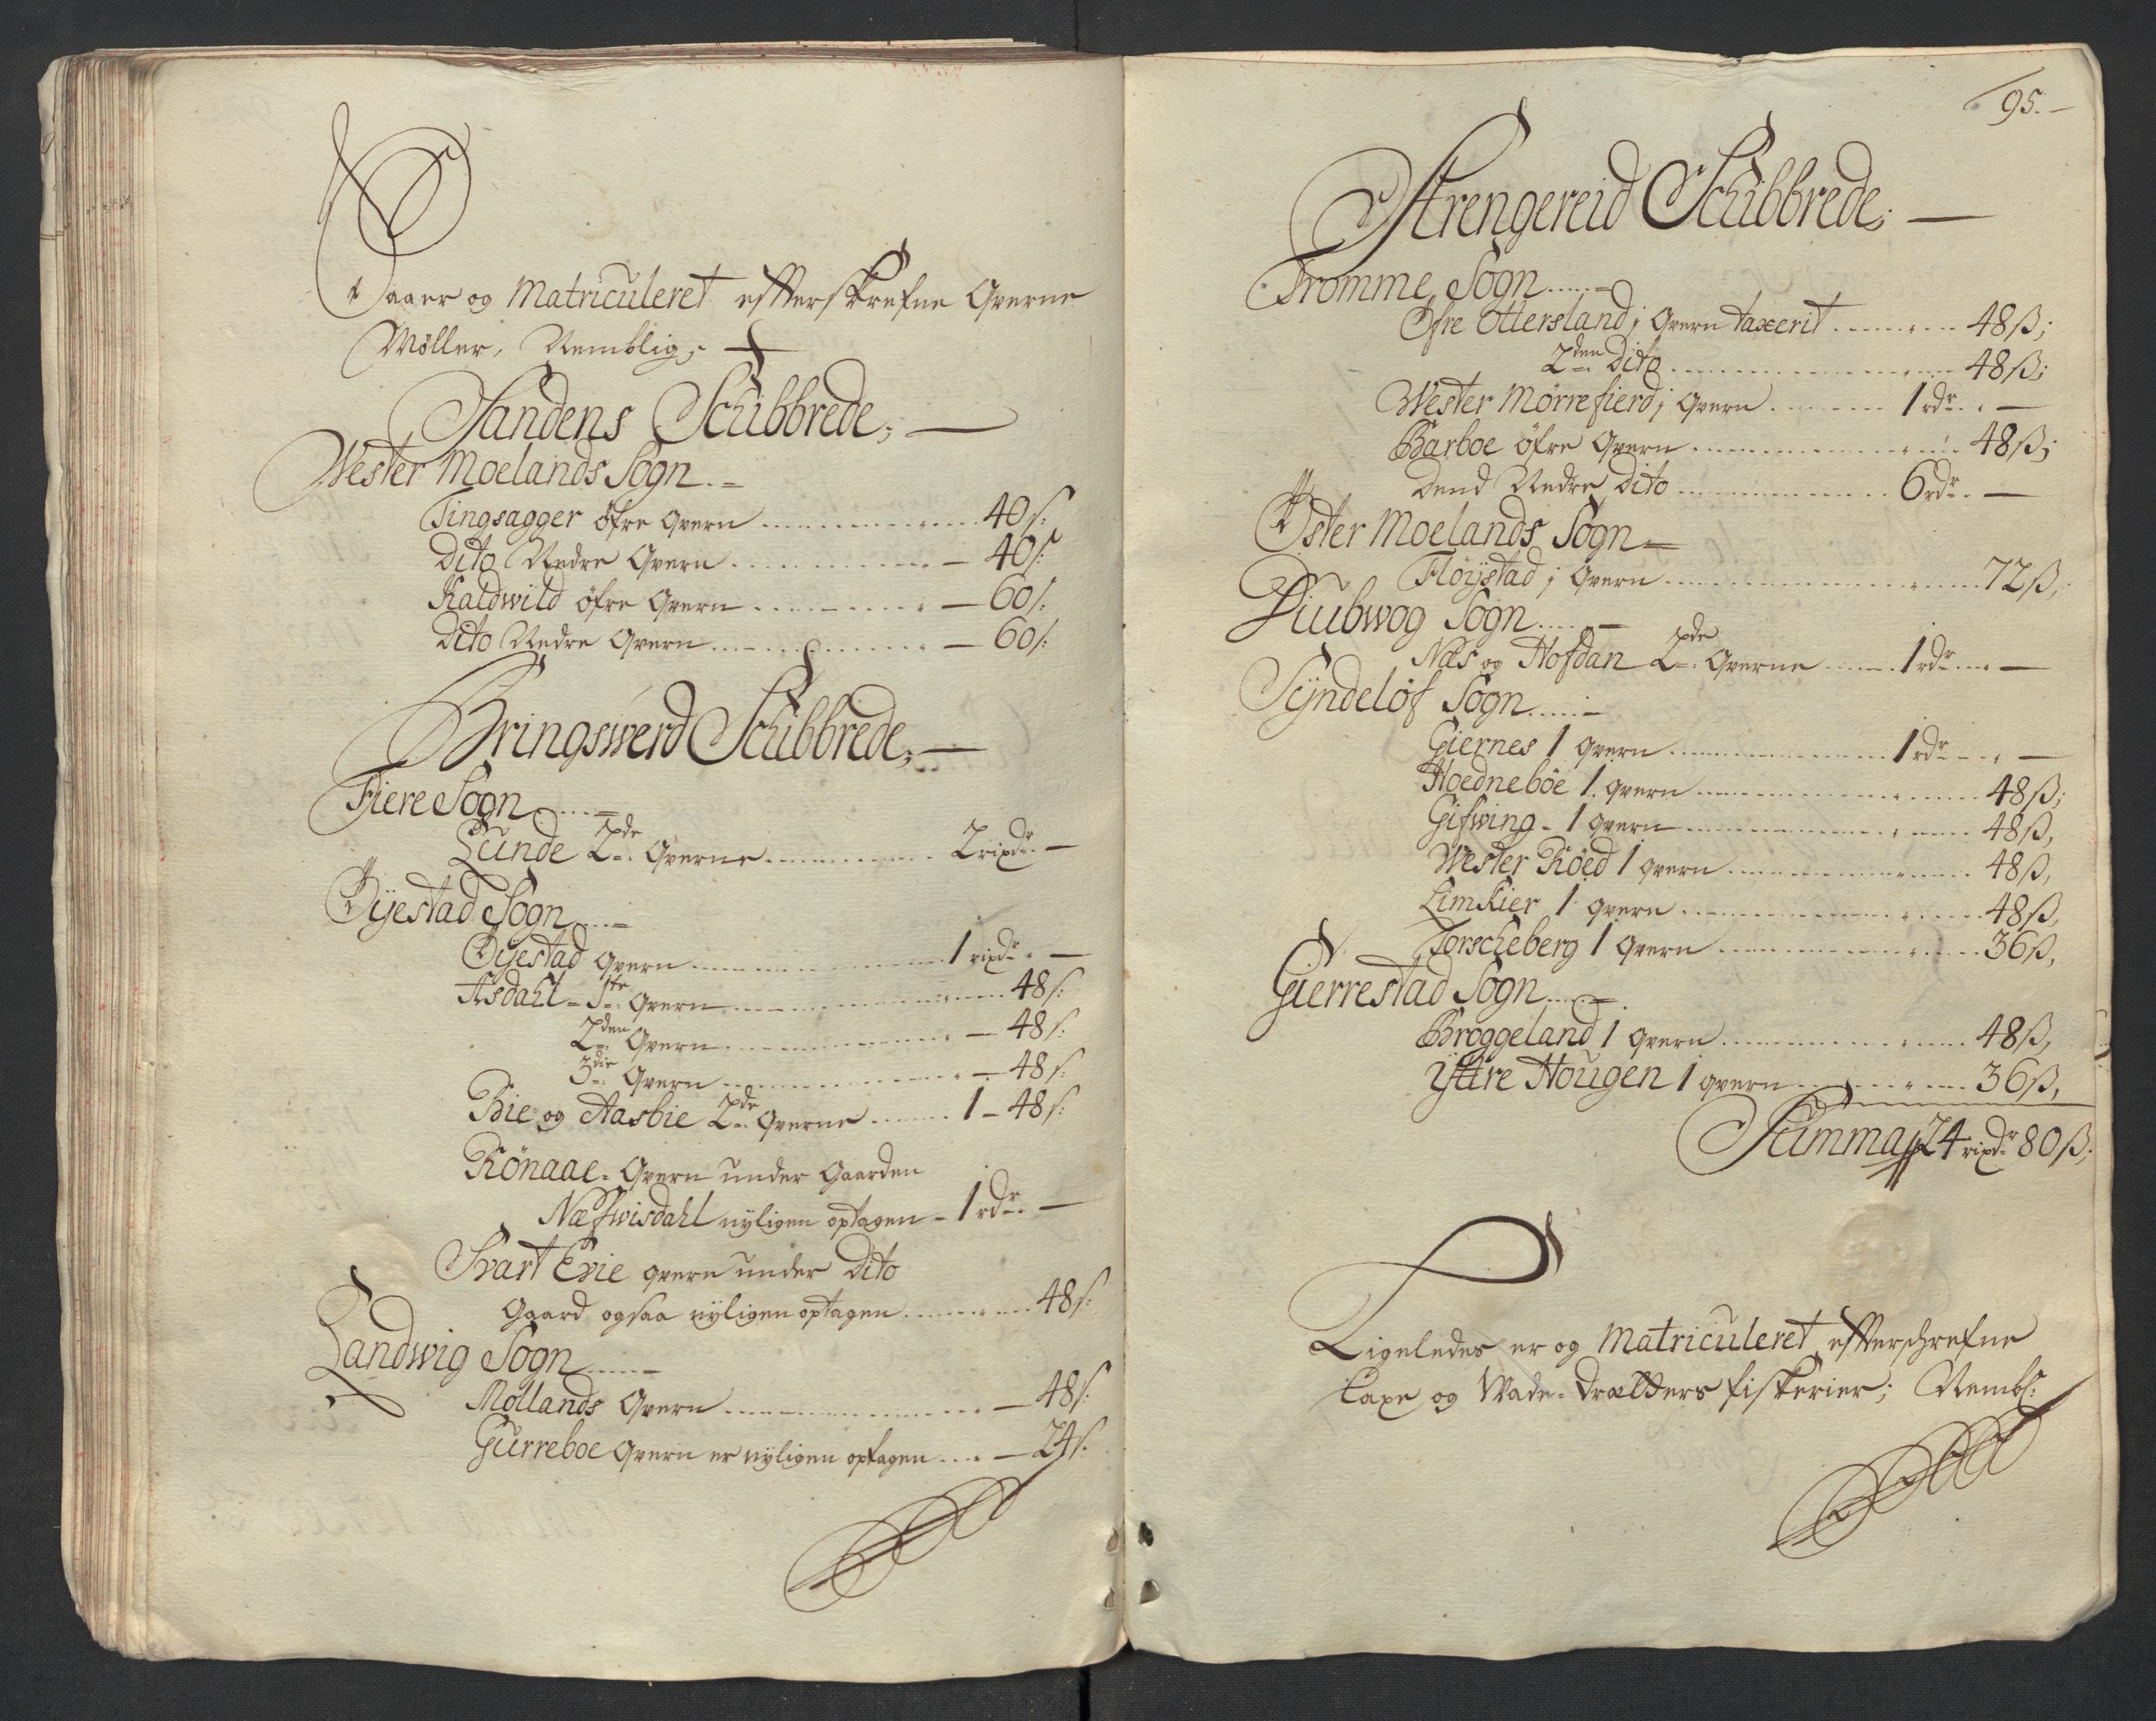 Saa er og Matriculeret effterskrefne Qverne
Møller, Nemblig;
Sandens Schibbrede;
Wester Moelands Sogn
Tingsagger öfre Qvern 40 s:
Dito Nedre Qvern 40 s:
Kaldwild öfre Qvern 60 s:
Dito Nedre Qvern 60 s:
Bringswerd Schibbrede;
Fiere Sogn
Lunde 2de Qverne 2 rixdr
Öÿestad Sogn
Öÿestad Qvern 1 rixdr
Asdahl - 1te Qvern 48 s:
2den Qvern 48 s:
3die Qvern 48 s:
Bie og Aasbie 2de Qverne 1 - 48 s:
Rönaae - Qvern under Gaarden
Næfwisdahl nyligen optagen - 1 rdr
Svart Evie qvern under Dito
Gaard ogsaa nyligen optagen 48 s:
Landwig Sogn
Mollands Qvern 48 s:
Gurreboe Qvern er nyligen optagen 24 s:
95.
Strengereid Schibbrede;
Tromme Sogn
Öfre Ottersland; Qvern taxerit 48 ß;
2den Dito 48 ß;
Wester Mörrefierd; Qvern 1 rdr
Barboe öfre Qvern 48 ß;
Dend Nedre Dito 6 rdr
Öster Moelands Sogn
Flöÿstad; Qvern 72 ß,
Diubwog Sogn
Næs og Hofdan 2de Qverne 1 rdr
Sÿndelöf Sogn
Giernes 1 qvern 1 rdr
Hoedneböe 1 qvern 48 ß;
Gifwing - 1 qvern 48 ß,
Wester Röed 1 qvern 48 ß,
Limkier 1 qvern 48 ß,
Torscheberg 1 Qvern 36 ß,
Gierrestad Sogn
Broggeland 1 qvern 48 ß,
Yttre Hougen 1 qvern 36 ß,
Summa 24 rixdr 80 ß;
Ligeledes er og Matriculeret effterschrefne
Laxe og Wade-Drætters fiskerier; Nembl: